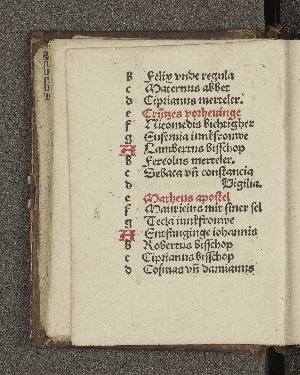 b Felix vnde regula
c Maternus abbet
d Ciprianus merteler.
e Crützes vorheuinge
f Nicomedis bichtigher
g Eufemia iunkfrouwe
A Lambertus bisschop
b Fereolus merteler.
c Sebaca vñ constancia
d Vigilia.
e Matheus apostel
f Mauricius mit siner sel
g Tecla iunkfrouwe
A Entfanginge iohannis
b Robertus bisschop
c Ciprianus bisschop
d Cosmas vñ damianus